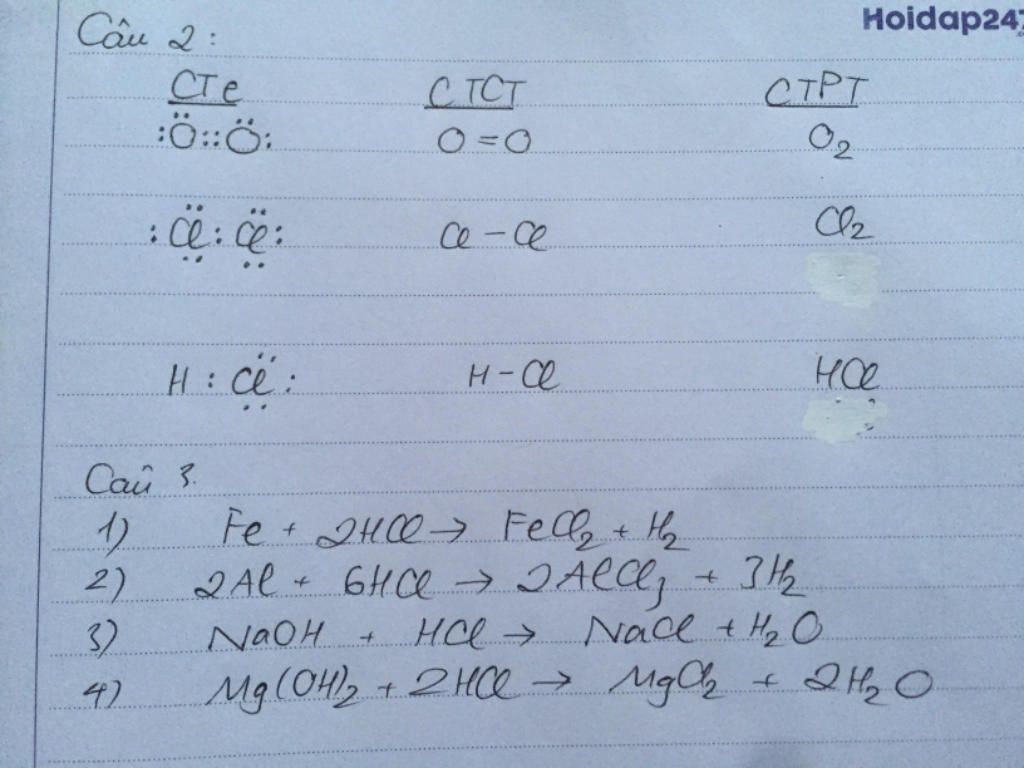 Hoidap247
Câu 2:
CTe CTCT CTPT
:Ö::Ö: O=O O₂
:C̤̈l:C̤̈l: Cl – Cl Cl₂
H:C̤̈l: H – Cl HCl
Câu 3.
1) Fe + 2HCl → FeCl₂ + H₂
2) 2Al + 6HCl → 2AlCl₃ + 3H₂
3) NaOH + HCl → NaCl + H₂O
4) Mg(OH)₂ + 2HCl → MgCl₂ + 2H₂O